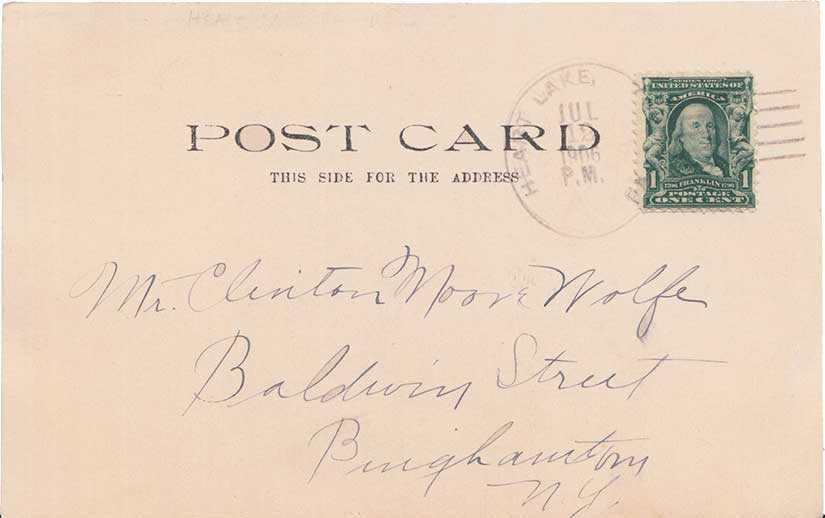 HEART LAKE,
JUL
1906
P.M.
SERIES 1902
UNITED STATES OF
AMERICA
1 1706 FRANKLIN 1790 1
POSTAGE
ONE CENT
POST CARD
THIS SIDE FOR THE ADDRESS
Mr. Clinton Moore Wolfe
Baldwin Street
Binghamton
N.Y.